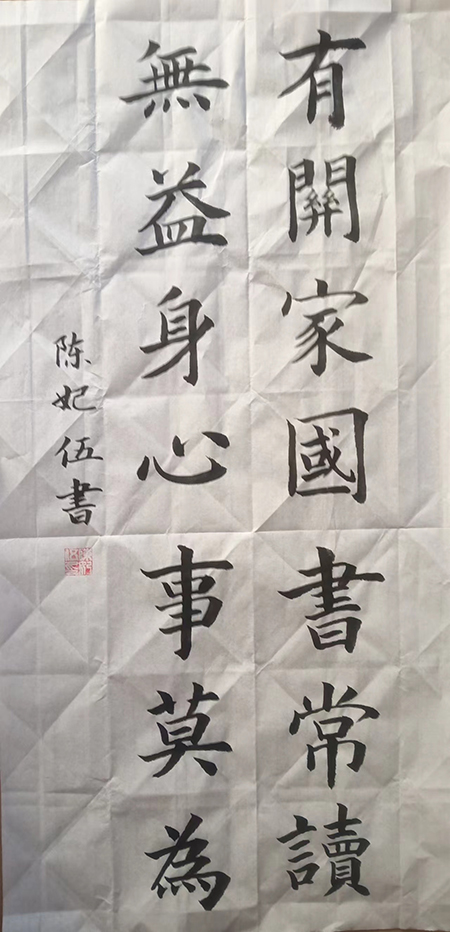 有關家國書常讀
無益身心事莫為
陈妃伍書